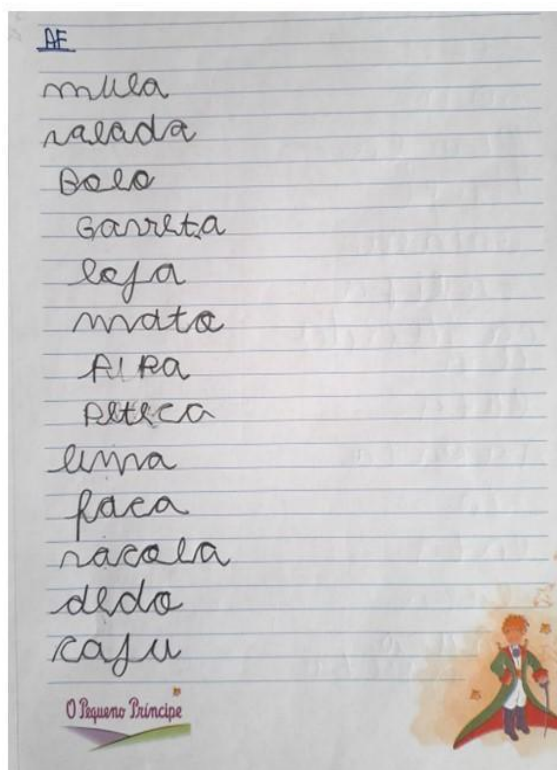 AF
mula
salada
Bolo
Garreta
loja
mato
PIPA
Peteca
lima
faca
sacola
dedo
caju
O Pequeno Príncipe